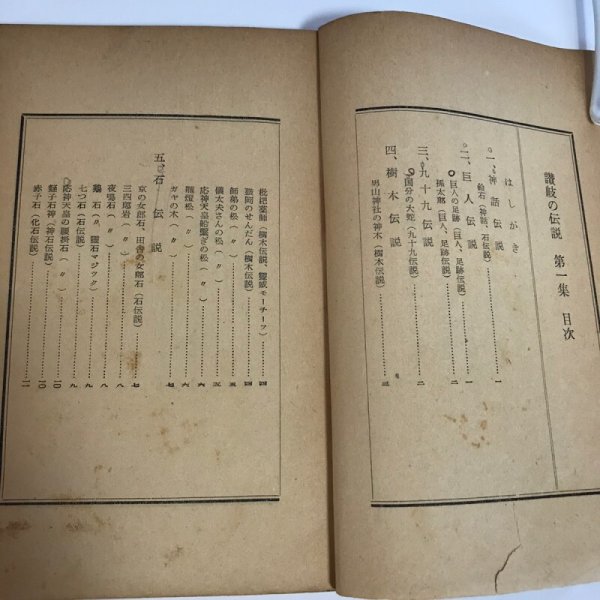 讃岐の伝説 第一集 目次
はしがき
一、神話伝説
絵石(神話、石伝説)……一
二、巨人伝説
巨人の足跡(巨人、足跡伝説)……一
孫太郎(巨人、足跡伝説)……二
三、九十九伝説
国分の大蛇(九十九伝説)……二
四、樹木伝説
男山神社の神木(樹木伝説)……三
枇杷薬師(樹木伝説、霊威モーチーフ)……四
磯岡のせんだん(樹木伝説)……四
師弟の松(〃)……五
儀太夫さんの松(〃)……五
応神天皇船繋ぎの松(〃)……六
龍燈松(〃)……六
ガヤの木(〃)……七
五、石伝説
京の女郎石、田舎の女郎石(石伝説)……七
三四郎岩(〃)……八
夜鳴石(〃)……八
鶏石(〃、霊石マジック)……九
七つ石(石伝説)……九
応神天皇の腰掛石(〃)……一〇
石神(神石伝説)……一〇
赤子石(化石伝説)……一一